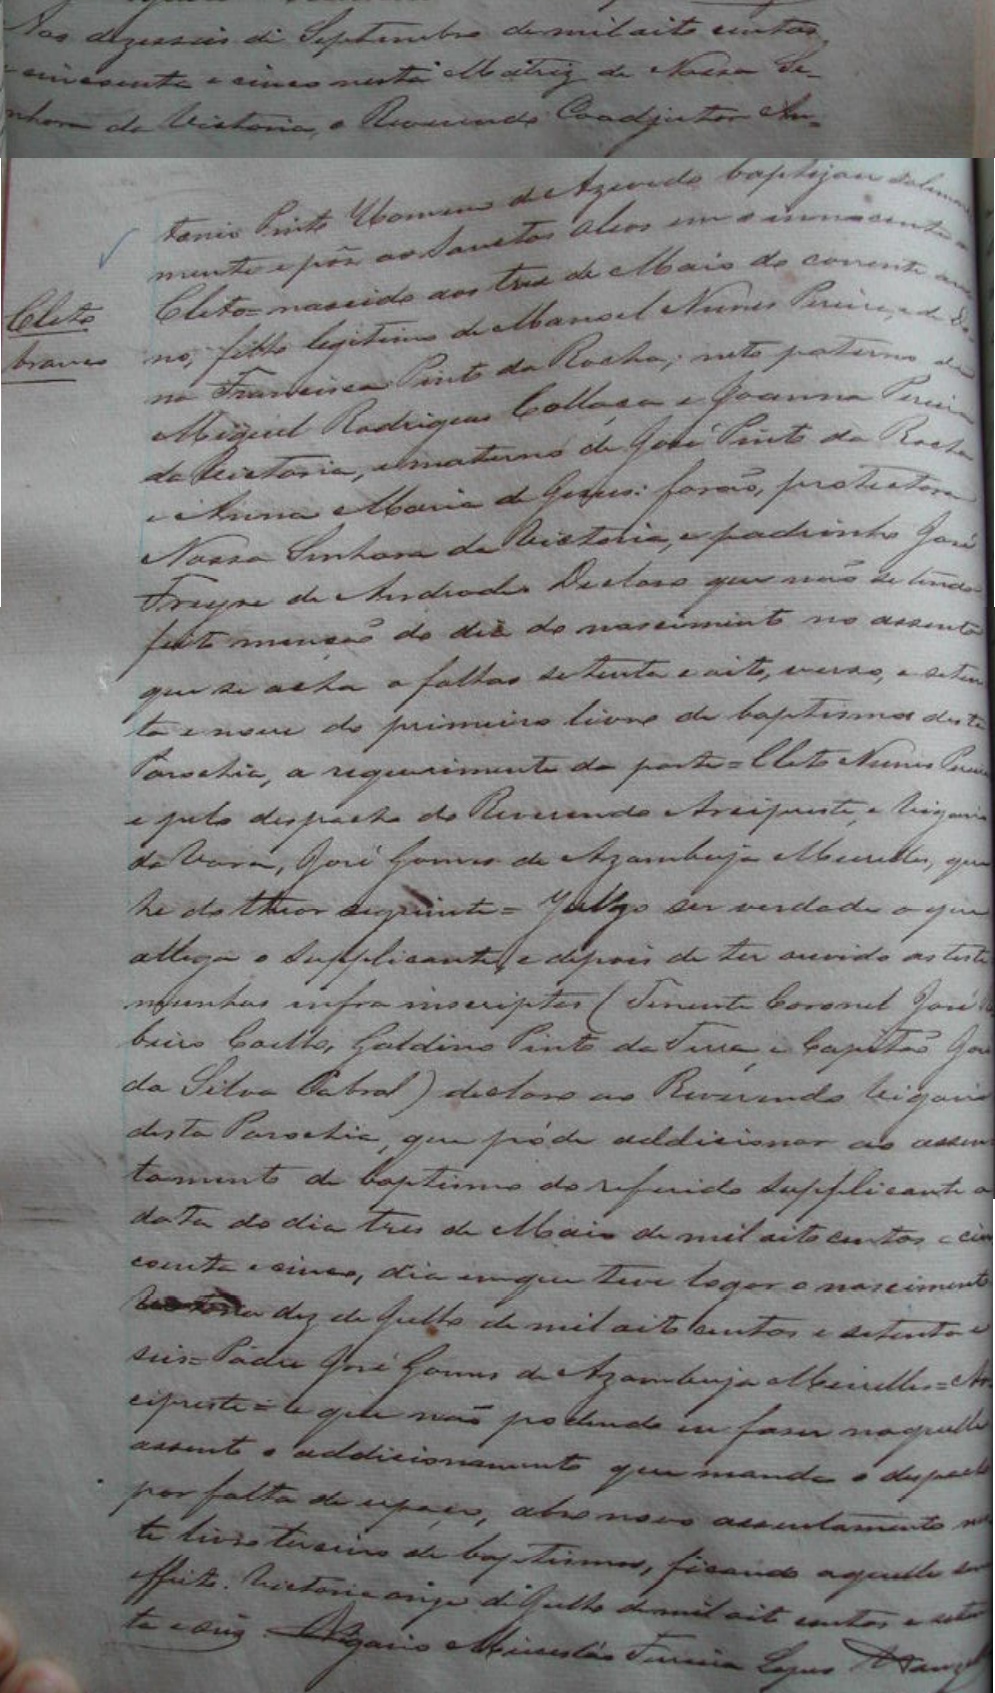 Aos dezesseis di Septembro de mil oito centos
e cincoenta e cinco nesta Matriz de Nossa Se-
nhora da Victoria, o Reverendo Coadjutor An-
tonio Pinto Homem de Azevedo baptizou solemne
mente e pôz os Sanctos Oleos em o innocente =
Cleto = nascido aos tres de Maio do corrente an
Cleto
branco
no, filho legitimo de Manoel Nunes Pereira, e de Do
na Francisca Pinto da Rocha; neto paterno de
Miguel Rodrigues Collaça e Joanna Pereira
da Victoria, e materno de José Pinto da Rocha
e Anna Maria de Jesus: forão, protectora
Nossa Senhora da Victoria, e padrinho José
Freyre de Andrade. Declaro que não se tendo
feito menção do dia do nascimento no assento
que se acha a folhas setenta e oito, verso, e seten
ta e nove do primeiro livro de baptismos desta
Parochia, a requerimento da parte = Cleto Nunes Pereira
e pelo despacho do Reverendo Arcipreste, e Vigario
da Vara, José Gomes de Azambuja Meirelles, que
he do theor seguinte = Julgo ser verdade o que
allega o supplicante, e depois de ter ouvido as teste
munhas infra inscriptas (Tenente Coronel José Ri
beiro Coelho, Galdino Pinto da Terra e Capitão José
da Silva Cabral) declaro ao Reverendo Vigario
desta Parochia, que póde addicionar ao assen
tamento de baptismo do referido supplicante a
data do dia tres de Maio de mil oito centos e cin
coenta e cinco, dia em que teve logar o nascimento
Victoria dez de Julho de mil oito centos e setenta e
seis = Padre José Gomes de Azambuja Meirelles = Ar
cipreste = e que não podendo eu fazer naquelle
assento o addicionamento que manda o despacho
por falta de espaço, abro novo assentamento nes
te livro terceiro de baptismos, ficando aquelle sem
effeito. Victoria onze di Julho de mil oito centos e seten
ta e seis. O Vigario Mieceslás Ferreira Lopes Wanzeller